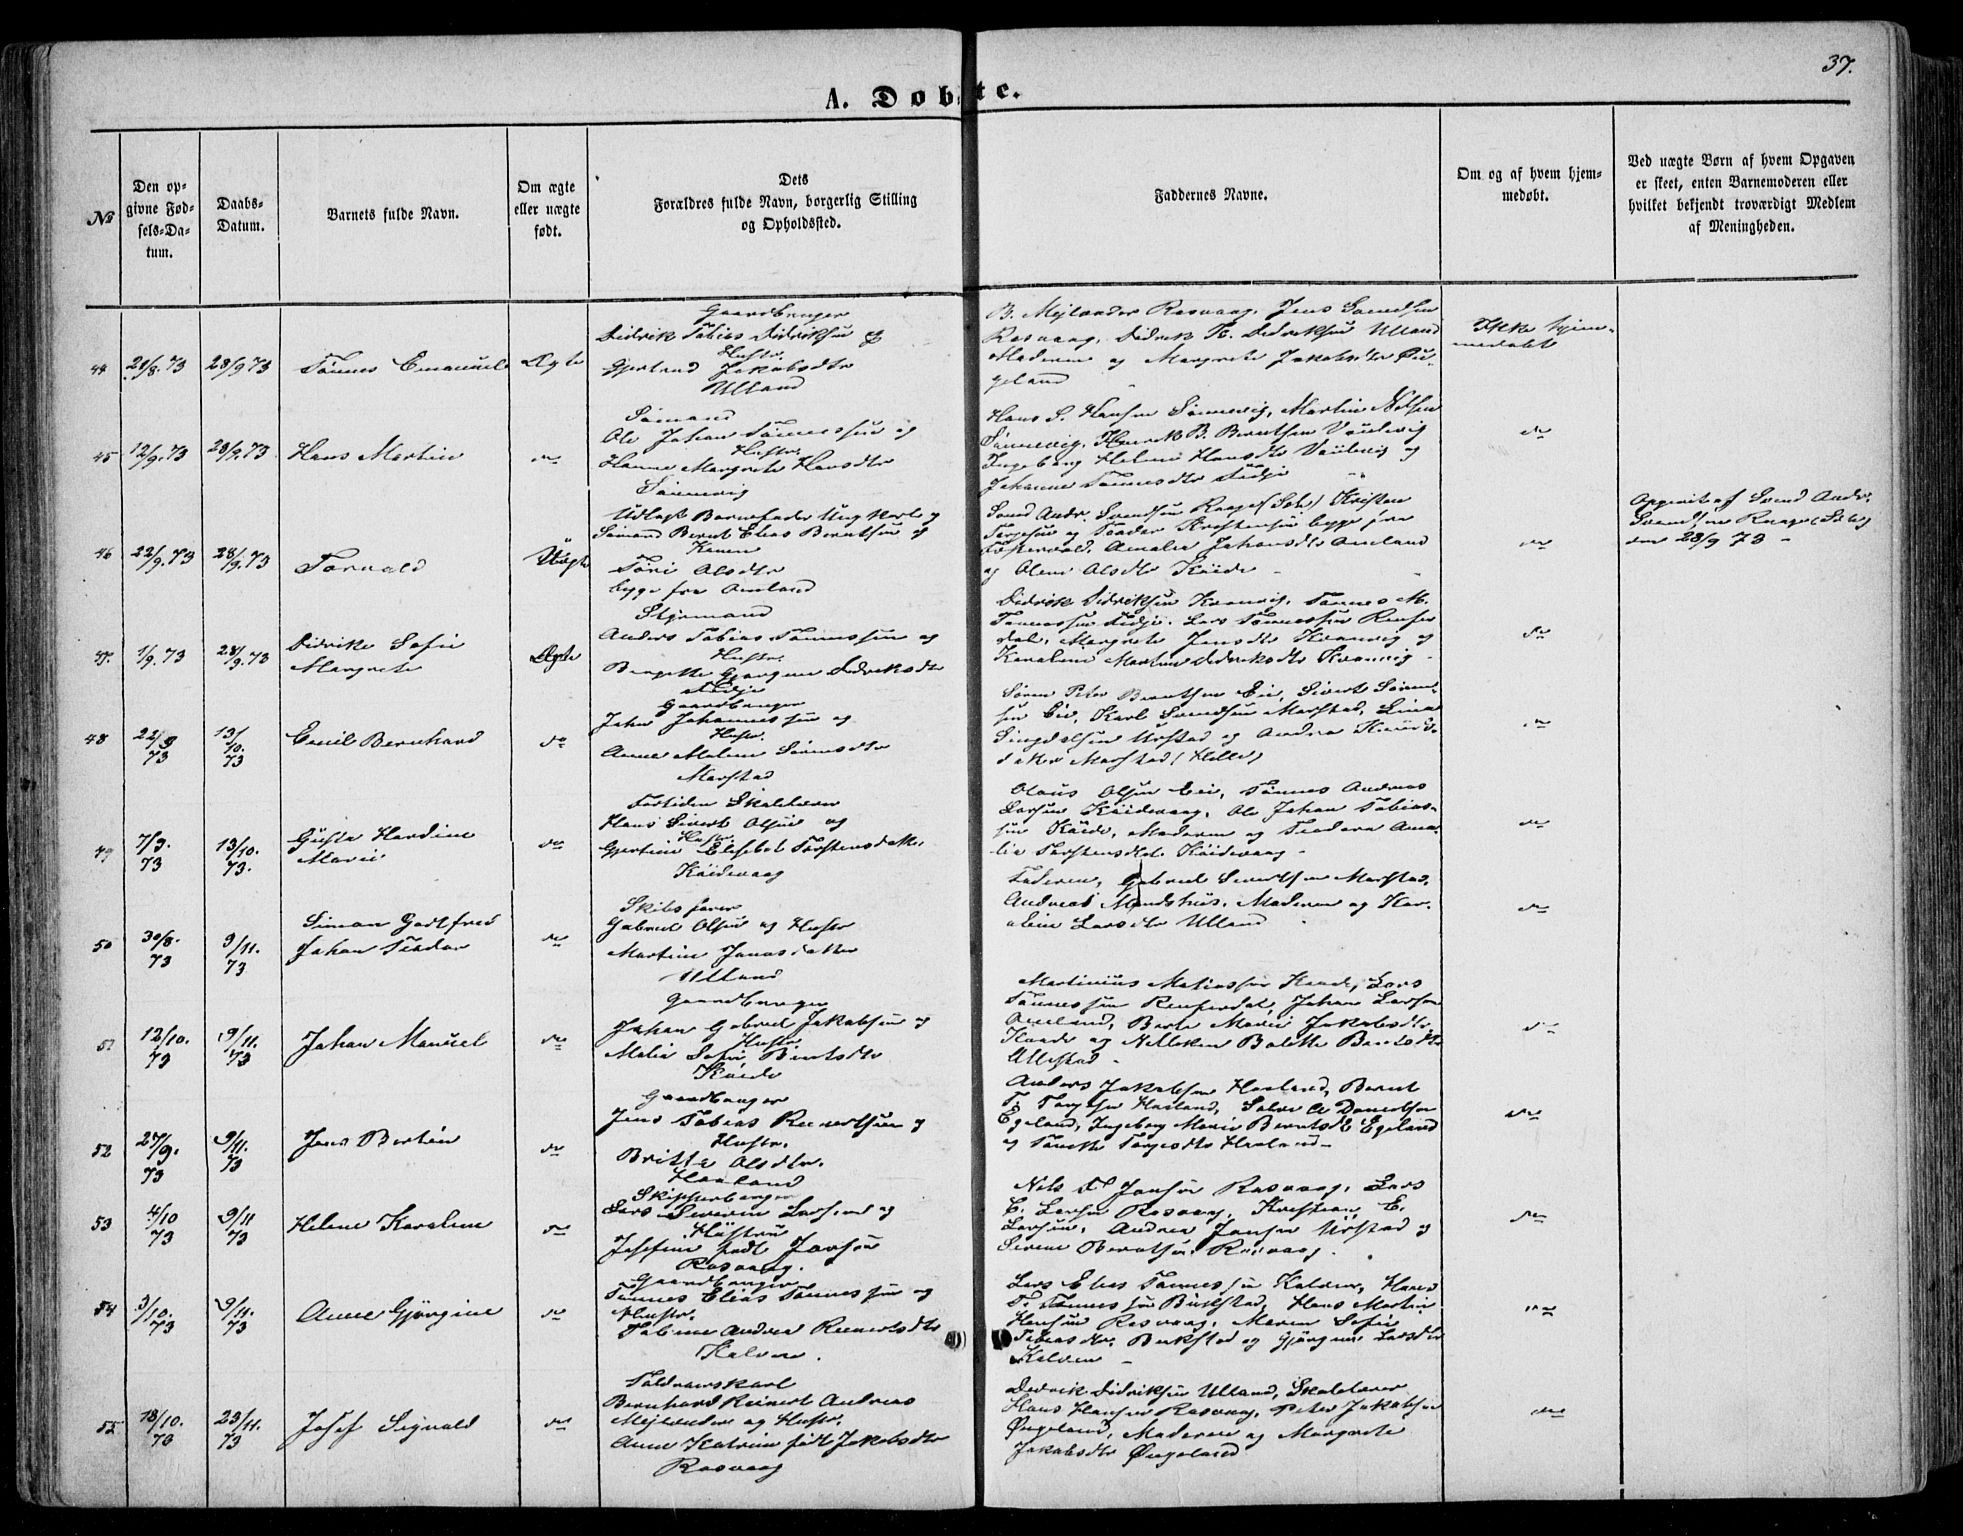 37.
A. Døbte.
№
Den opgivne Fødsels-Datum.
Daabs-Datum.
Barnets fulde Navn.
Om ægte eller uægte født.
Dets Forældres fulde Navn, borgerlig Stilling og Opholdssted.
Faddernes Navne.
Om og af hvem hjemmedøbt.
Ved uægte Børn af hvem Opgaven er skeet, enten Barnemoderen eller hvilket bekjendt troværdigt Medlem af Meningheden.
44
21/8. 73
28/9 73
Tønnes Emanuel
Ægte
Gaardbruger
Didrik Tobias Didriksen og
Hustr.
Gjertrud Jakobsdtr
Ulland
B. Mejlænder Rasvaag, Jens Svendsen
Rasvaag, Didrik T. Didriksen Ulland
Moderen og Margrete Jakobsdtr Øie-
geland
Ikke hjem-
medøbt
45
12/9. 73
28/9. 73
Hans Martin
do
Sømand
Ole Johan Tønnessen og
Hustr.
Hanne Margrete Hansdtr
Sønnevig
Hans S. Hansen Sønnevig, Martin
Sønnevig, Henrik B. Berntsen
Ingeborg Helene Hansdtr og
Johanne Tønnesdtr
do
46
22/9. 73
28/9. 73
Torvald
Uægte
Udlagt Barnefader Ungkarl og
Sømand Bernt Elias Berntsen og
Konen
Tori Olsdtr
begge fra Amland
Svend Andr. Svendsen Raage (Sole) Kristen
og Teodor Kristensen begge fra
Amalia Johansdtr Ameland
og Olene Olsdtr Køide
do
Opgivet af Svend Andr.
Svendsen Raage (Sole)
den 28/9 73 -
47.
1/9. 73
28/9. 73
Didrikke Sofie
Margrete
Ægte
Styrmand
Anders Tobias Tønnessen og
Hustr.
Bergette Gjorgine Didriksdtr
Didrik Didriksen Kvanvig, Tønnes M.
Tønnessen. Lars Tønnessen Reiser-
dal, Margrete Jensdtr Kvanvig og
Karoline Martine Didriksdtr Kvanvig
do
48
22/9
73
13/10.
73
Emil Bernhard
do
Gaardbruger
John Johannessen og
Hustr.
Anne Malene Sørensdtr
Marstad
Søren Peter Berntsen Eie, Sivert Søren-
sen Eie, Karl Svendsen Marstad, Lina
Urstad og Andrea
Marstad (Helle)
do
49
7/9.
73
13/10.
73.
Gusta Hardine
Marie
do
Fortiden Skolelærer
Hans Sivert Olsen og
Hustr.
Gjertine Elisebet Torstensdatter
Køidevaag
Olaus Olsen Eie, Tønnes Andreas
Larsen Køidevaag, Ole Johan Tobias-
sen Køide, Moderen og Teodora Ama-
lia Torstensdtr Køidevaag
do
50
30/8.
73
9/11.
73
Simon Godtfred
Johan Teodor
do
Skibsfører
Gabriel Olsen og Hustr
Martine Jonasdatter
Ulland
Faderen, Gabriel Sivertsen Marstad,
Andreas, Moderen og Kar-
oline Larsdtr Ulland
do
51
12/10.
73
9/11.
73
Johan Manuel
do
Gaardbruger
Johan Gabriel Jakobsen og
Hustr.
Malia Sofie Berntsdtr
Køide
Martinius Matiassen, Lars
Tønnessen Reiserdal, Johan Larsen
Ameland, Berte Marie Jakobsdtr
og Bolette Berntsdtr
Ullestad
do
52
27/9.
73
9/11.
73
Jens Bertin
do
Gaardbruger
Jens Tobias Reinertsen og
Hustr.
Britte Olsdtr.
Haaland
Anders Jakobsen Haaland, Bernt
T. Haaland, Salve A Danielsen
Egeland, Ingeborg Marie Berntsdtr Egeland
og Haaland
do
53
4/10
73
9/11
73
Helene Karoline
do
Skipperborger
Lars Severin Larsen og
Hustru
Josefine født Jansen
Rasvaag.
Nils Jansen Rasvaag, Lars
E. Larsen Rasvaag, Kristian E.
Larsen, Andrea Jansen Urstad og
Sirene Berntsen Rasvaag.
do
54
3/10.
73
9/11.
73
Anne Gjørgine
do
Gaardbruger
Tønnes Elias Tønnessen og
Hustr.
Tobine Andrea Reinertsdtr
Kalven.
Lars Elias Tønnessen Kalven, Hans
T. Tønnessen Bukstad, Hans Martin
Hansen Rasvaag, Maren Sofie
Tobiasdtr. Bukstad og Gjørgine Larsdtr
Kalven
do
55
18/10.
73
23/11.
73
Josef Sigvald
do
Toldroerskarl
Bernhard Reinert Andreas
Mejlænder og Hustr.
Anne Katrine født Jakobsdtr
Rasvaag
Didrik Didriksen Ulland, Skolelærer
Hans Hansen Rasvaag, Peter Jakobsen
Øiegeland, Moderen og Margrete
Jakobsdtr Øiegeland
do